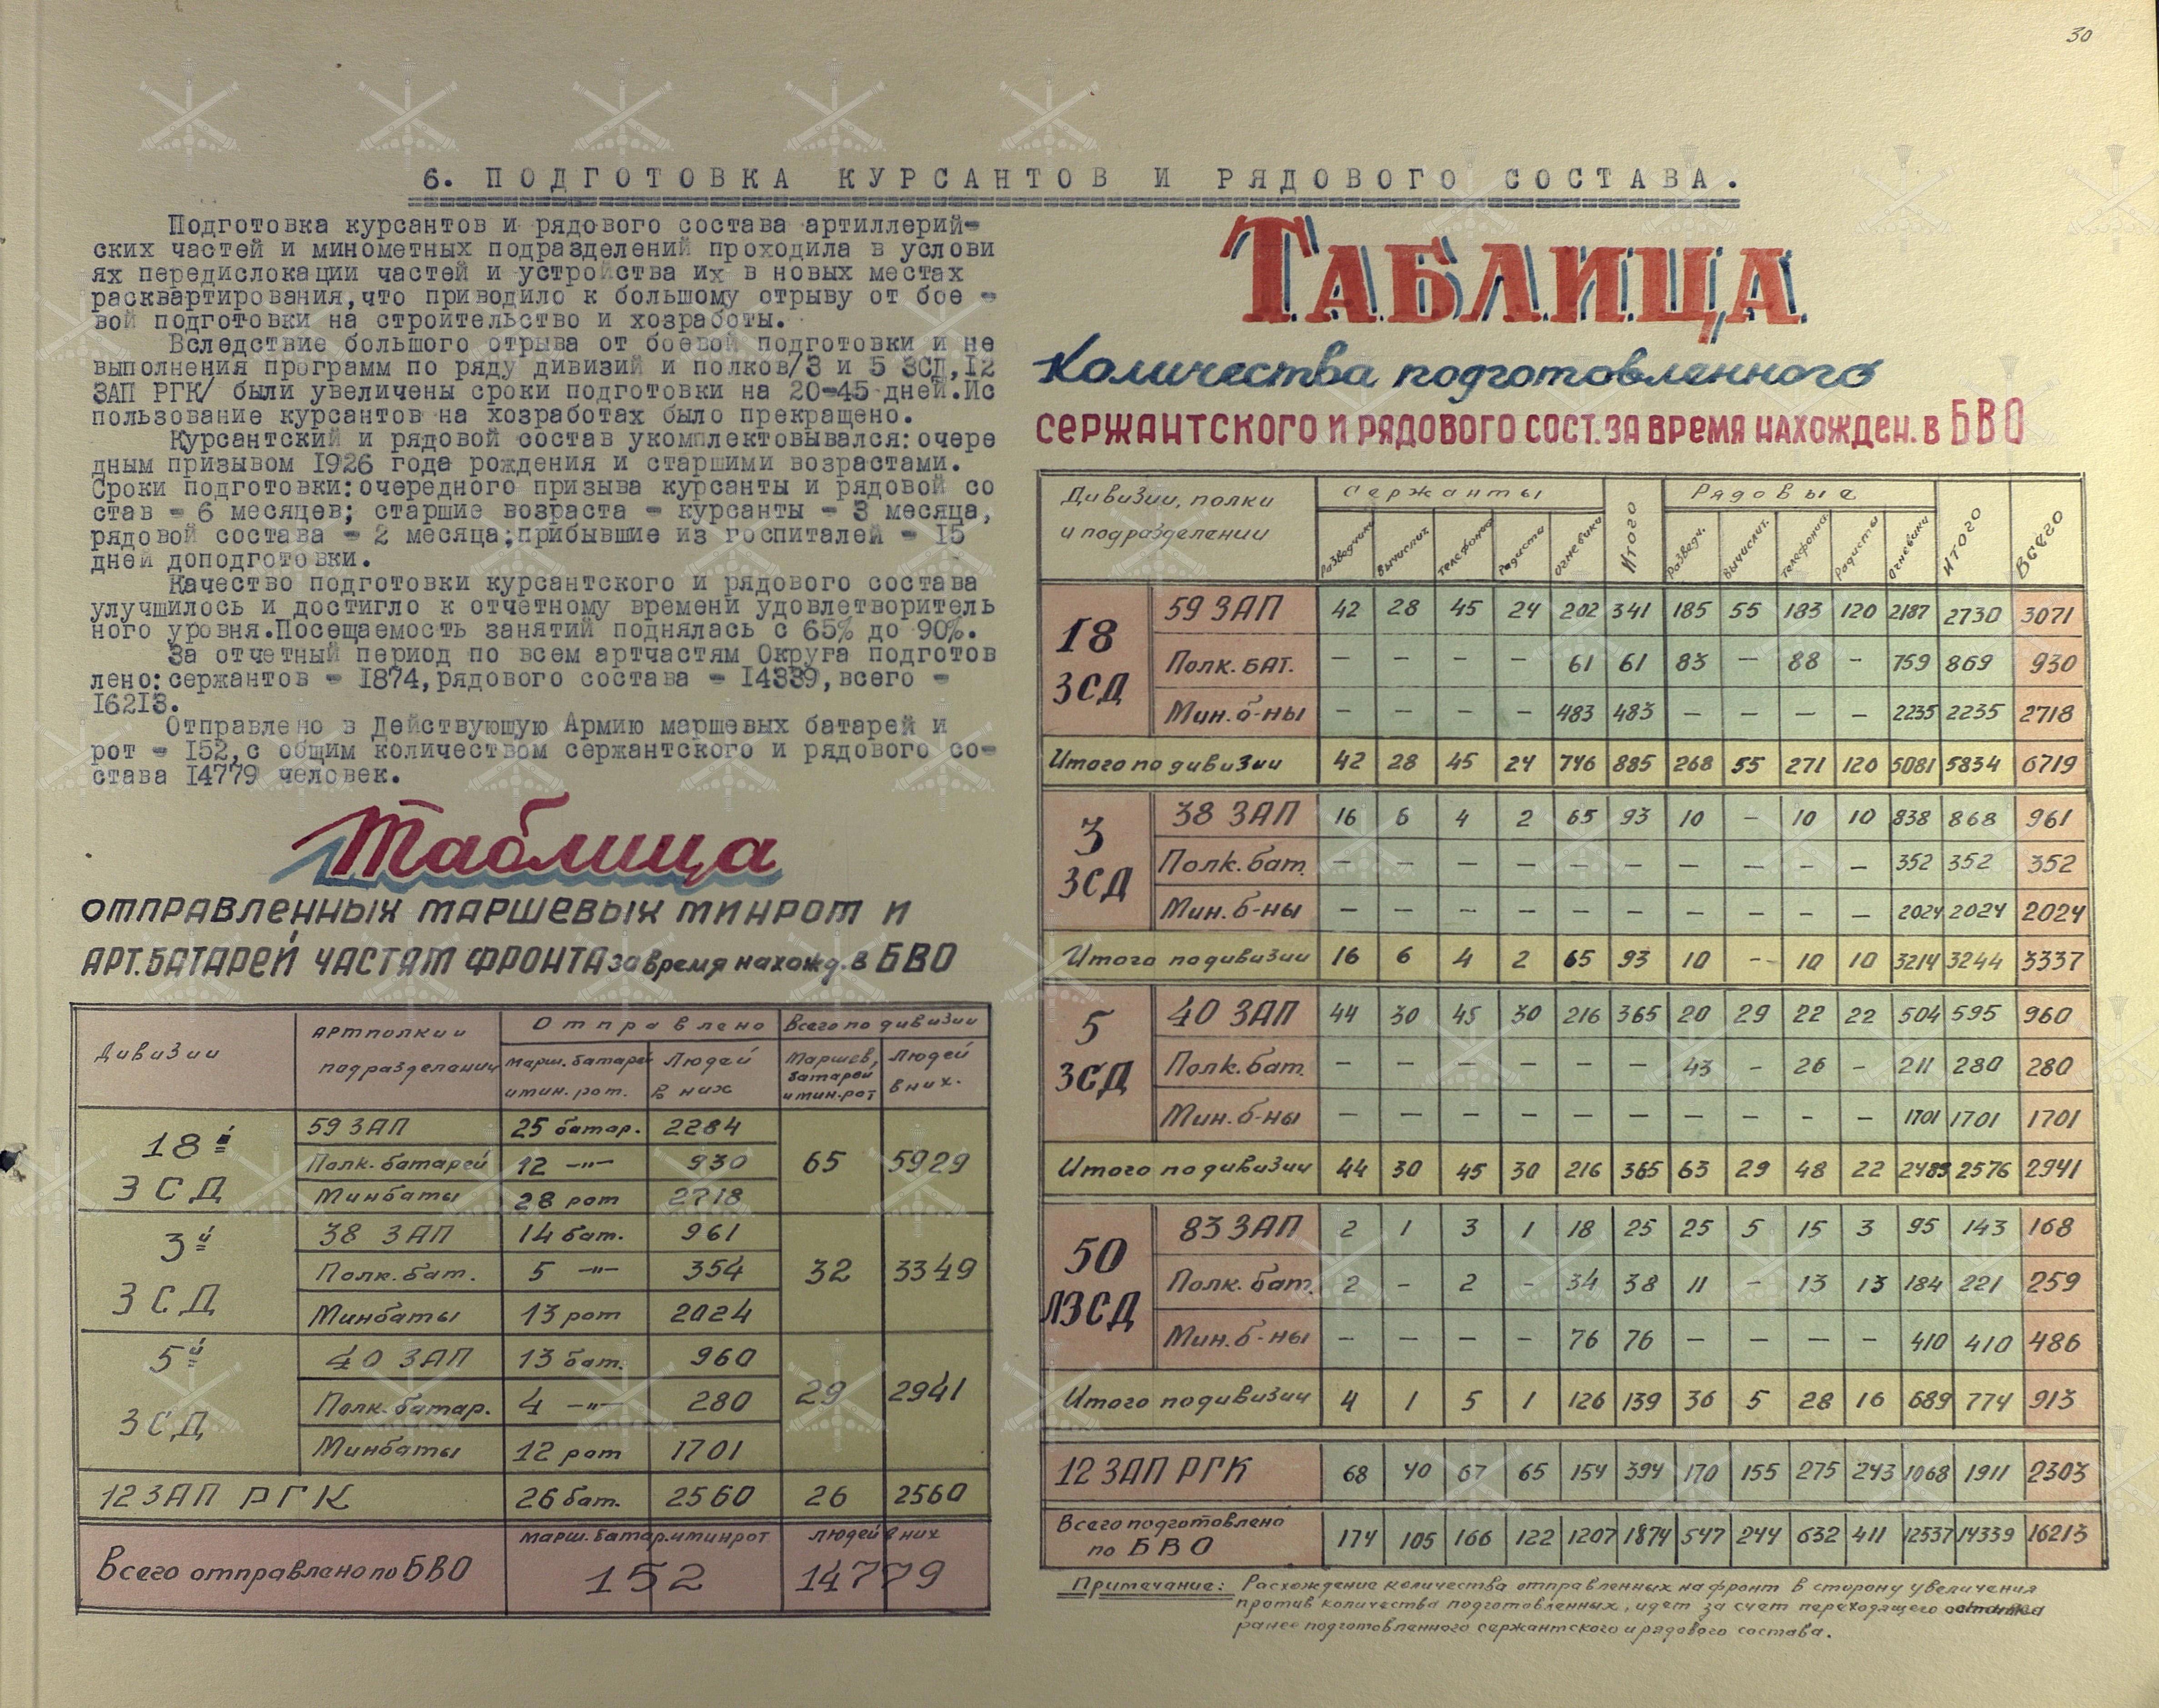 30
6. ПОДГОТОВКА КУРСАНТОВ И РЯДОВОГО СОСТАВА.
Подготовка курсантов и рядового состава артиллерий-
ских частей и минометных подразделений проходила в услови
ях передислокации частей и устройства их в новых местах
расквартирования,что приводило к большому отрыву от бое -
вой подготовки на строительство и хозработы.
Вследствие большого отрыва от боевой подготовки и не
выполнения программ по ряду дивизий и полков/3 и 5 ЗСД,12
ЗАП РГК/ были увеличены сроки подготовки на 20-45 дней.Ис
пользование курсантов на хозработах было прекращено.
Курсантский и рядовой состав укомплектовывался:очере
дным призывом 1926 года рождения и старшими возрастами.
Сроки подготовки:очередного призыва курсанты и рядовой со
став - 6 месяцев; старшие возраста - курсанты - 3 месяца,
рядовой состава - 2 месяца;прибывшие из госпиталей - 15
дней доподготовки.
Качество подготовки курсантского и рядового состава
улучшилось и достигло к отчетному времени удовлетворитель
ного уровня.Посещаемость занятий поднялась с 65% до 90%.
За отчетный период по всем артчастям Округа подготов
лено:сержантов - 1874,рядового состава - 14339,всего -
16213.
Отправлено в Действующую Армию маршевых батарей и
рот - 152,с общим количеством сержантского и рядового со-
става 14779 человек.
Таблица
отправленных маршевых минрот и
арт.батарей частям фронта за время нахожд. в БВО
Дивизии | Артполки и подразделении | Отправлено | Всего по дивизии
марш. батарей и мин. рот. | Людей в них | Маршев. батарей и мин.рот | Людей в них.
18й ЗСД | 59 ЗАП | 25 батар. | 2284 | 65 | 5929
Полк. батарей | 12 -"- | 930
Минбаты | 28 рот | 2718
3й ЗСД | 38 ЗАП | 14 бат. | 961 | 32 | 3349
Полк. бат. | 5 -"- | 354
Минбаты | 13 рот | 2024
5й ЗСД | 40 ЗАП | 13 бат. | 960 | 29 | 2941
Полк. батар. | 4 -"- | 280
Минбаты | 12 рот | 1701
12 ЗАП РГК | 26 бат. | 2560 | 26 | 2560
Всего отправлено по БВО | марш. батар. и минрот 152 | людей в них 14779
Таблица
Количества подготовленного
сержантского и рядового сост. за время нахожден. в БВО
Дивизии, полки и подразделении | Сержанты | Итого | Рядовые | Итого | Всего
Разведчики | Вычислит. | Телефонис | Радисты | Огневики | Разведч. | Вычислит. | Телефонис. | Радисты | Огневики
18 ЗСД | 59 ЗАП | 42 | 28 | 45 | 24 | 202 | 341 | 185 | 55 | 183 | 120 | 2187 | 2730 | 3071
Полк. бат. | - | - | - | - | 61 | 61 | 83 | - | 88 | - | 759 | 869 | 930
Мин. б-ны | - | - | - | - | 483 | 483 | - | - | - | - | 2235 | 2235 | 2718
Итого по дивизии | 42 | 28 | 45 | 24 | 746 | 885 | 268 | 55 | 271 | 120 | 5081 | 5834 | 6719
3 ЗСД | 38 ЗАП | 16 | 6 | 4 | 2 | 65 | 93 | 10 | - | 10 | 10 | 838 | 868 | 961
Полк. бат. | - | - | - | - | - | - | - | - | - | - | 352 | 352 | 352
Мин. б-ны | - | - | - | - | - | - | - | - | - | - | 2024 | 2024 | 2024
Итого по дивизии | 16 | 6 | 4 | 2 | 65 | 93 | 10 | - | 10 | 10 | 3214 | 3244 | 3337
5 ЗСД | 40 ЗАП | 44 | 30 | 45 | 30 | 216 | 365 | 20 | 29 | 22 | 22 | 504 | 595 | 960
Полк. бат. | - | - | - | - | - | - | 43 | - | 26 | - | 211 | 280 | 280
Мин. б-ны | - | - | - | - | - | - | - | - | - | - | 1701 | 1701 | 1701
Итого по дивизии | 44 | 30 | 45 | 30 | 216 | 365 | 63 | 29 | 48 | 22 | 2576 | 2941
50 ЛЗСД | 83 ЗАП | 2 | 1 | 3 | 1 | 18 | 25 | 25 | 5 | 15 | 3 | 95 | 143 | 168
Полк. бат. | 2 | - | 2 | - | 34 | 38 | 11 | - | 13 | 13 | 184 | 221 | 259
Мин. б-ны | - | - | - | - | 76 | 76 | - | - | - | - | 410 | 410 | 486
Итого по дивизии | 4 | 1 | 5 | 1 | 126 | 139 | 36 | 5 | 28 | 16 | 689 | 774 | 913
12 ЗАП РГК | 68 | 40 | 67 | 65 | 154 | 394 | 170 | 155 | 275 | 243 | 1068 | 1911 | 2303
Всего подготовлено по БВО | 174 | 105 | 166 | 122 | 1207 | 1874 | 547 | 244 | 632 | 411 | 12537 | 14339 | 16213
Примечание: Расхождение количества отправленных на фронт в сторону увеличения
против количества подготовленных, идет за счет переходящего остатка
ранее подготовленного сержантского и рядового состава.